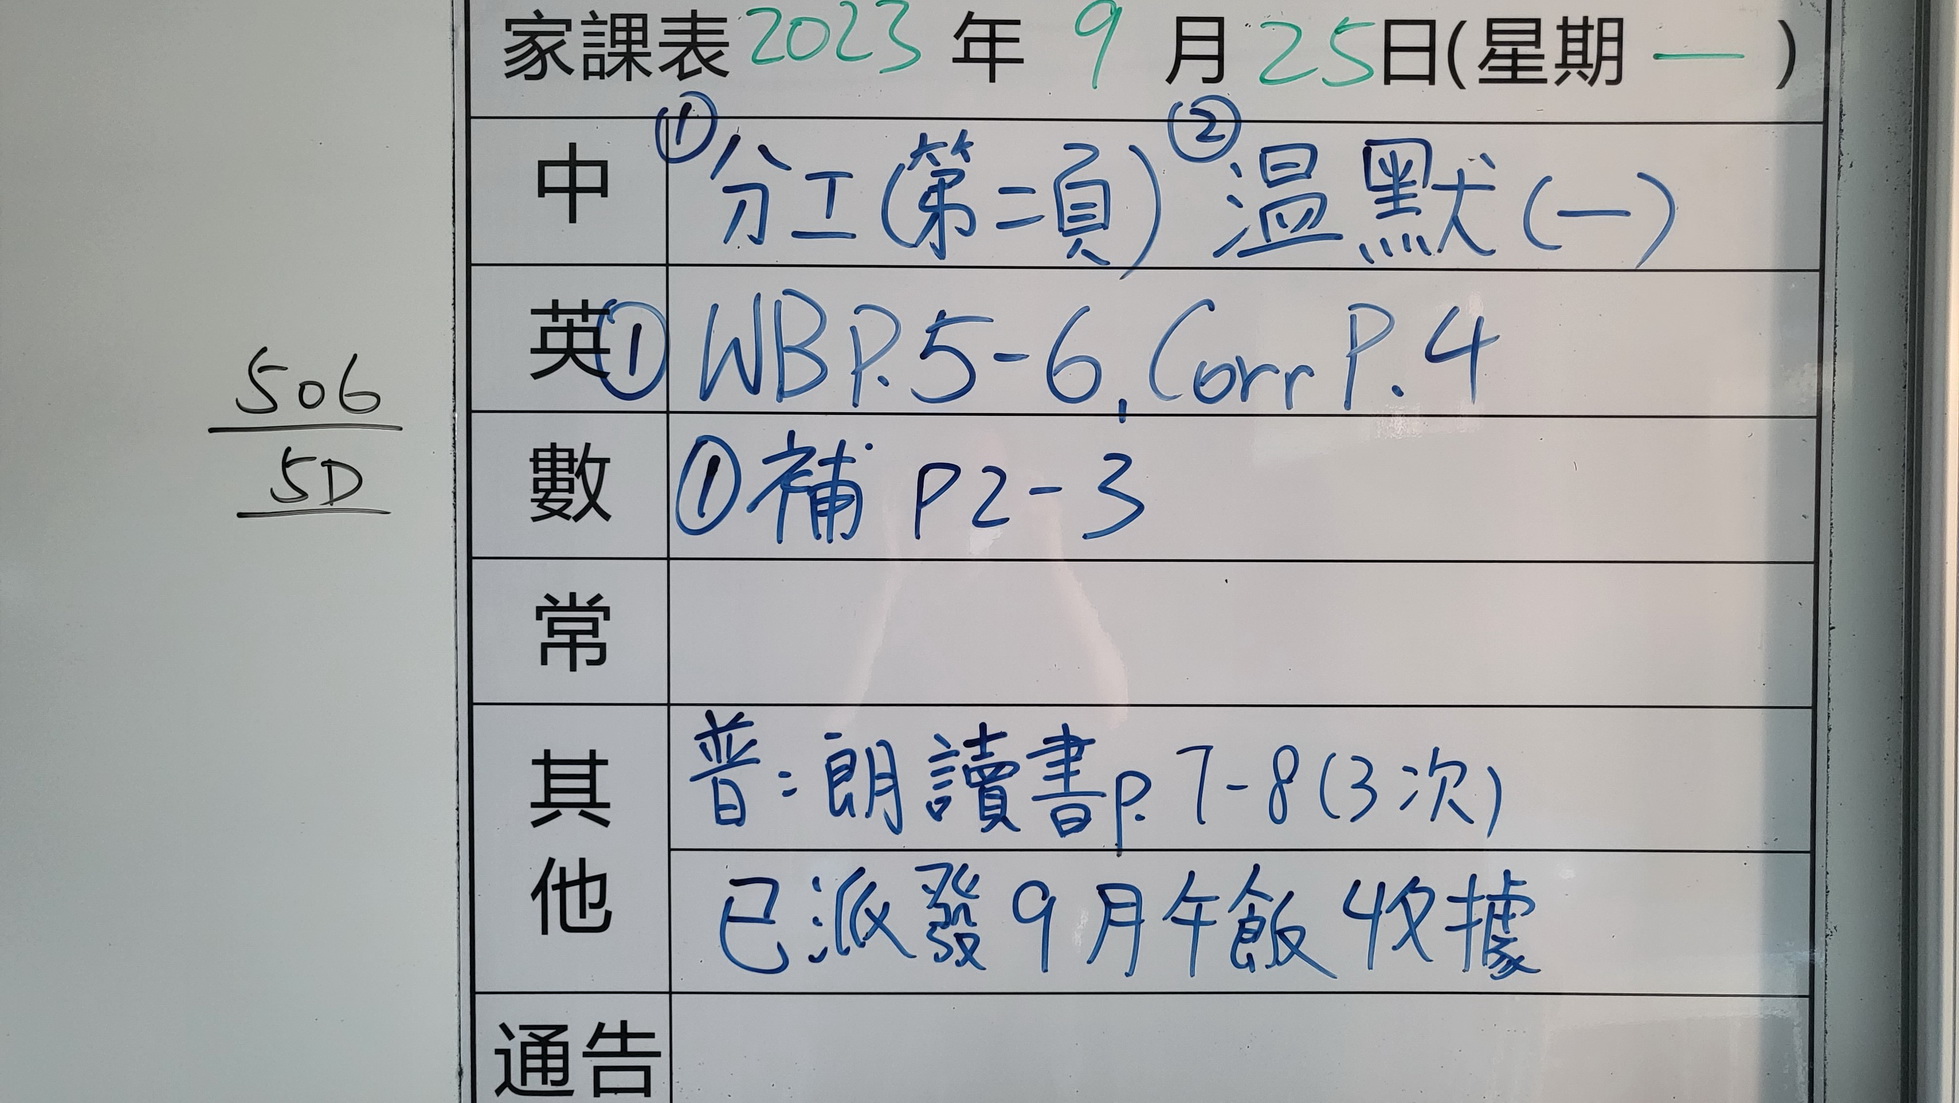 家課表 2023 年 9 月 25 日(星期 一 )
中 ①分工(第二頁) ②温默(一)
英 ① WB P.5-6, Corr P.4
506
5D
數 ①補 P2-3
常
其他
普:朗讀書p.7-8(3次)
已派發9月午飯收據
通告